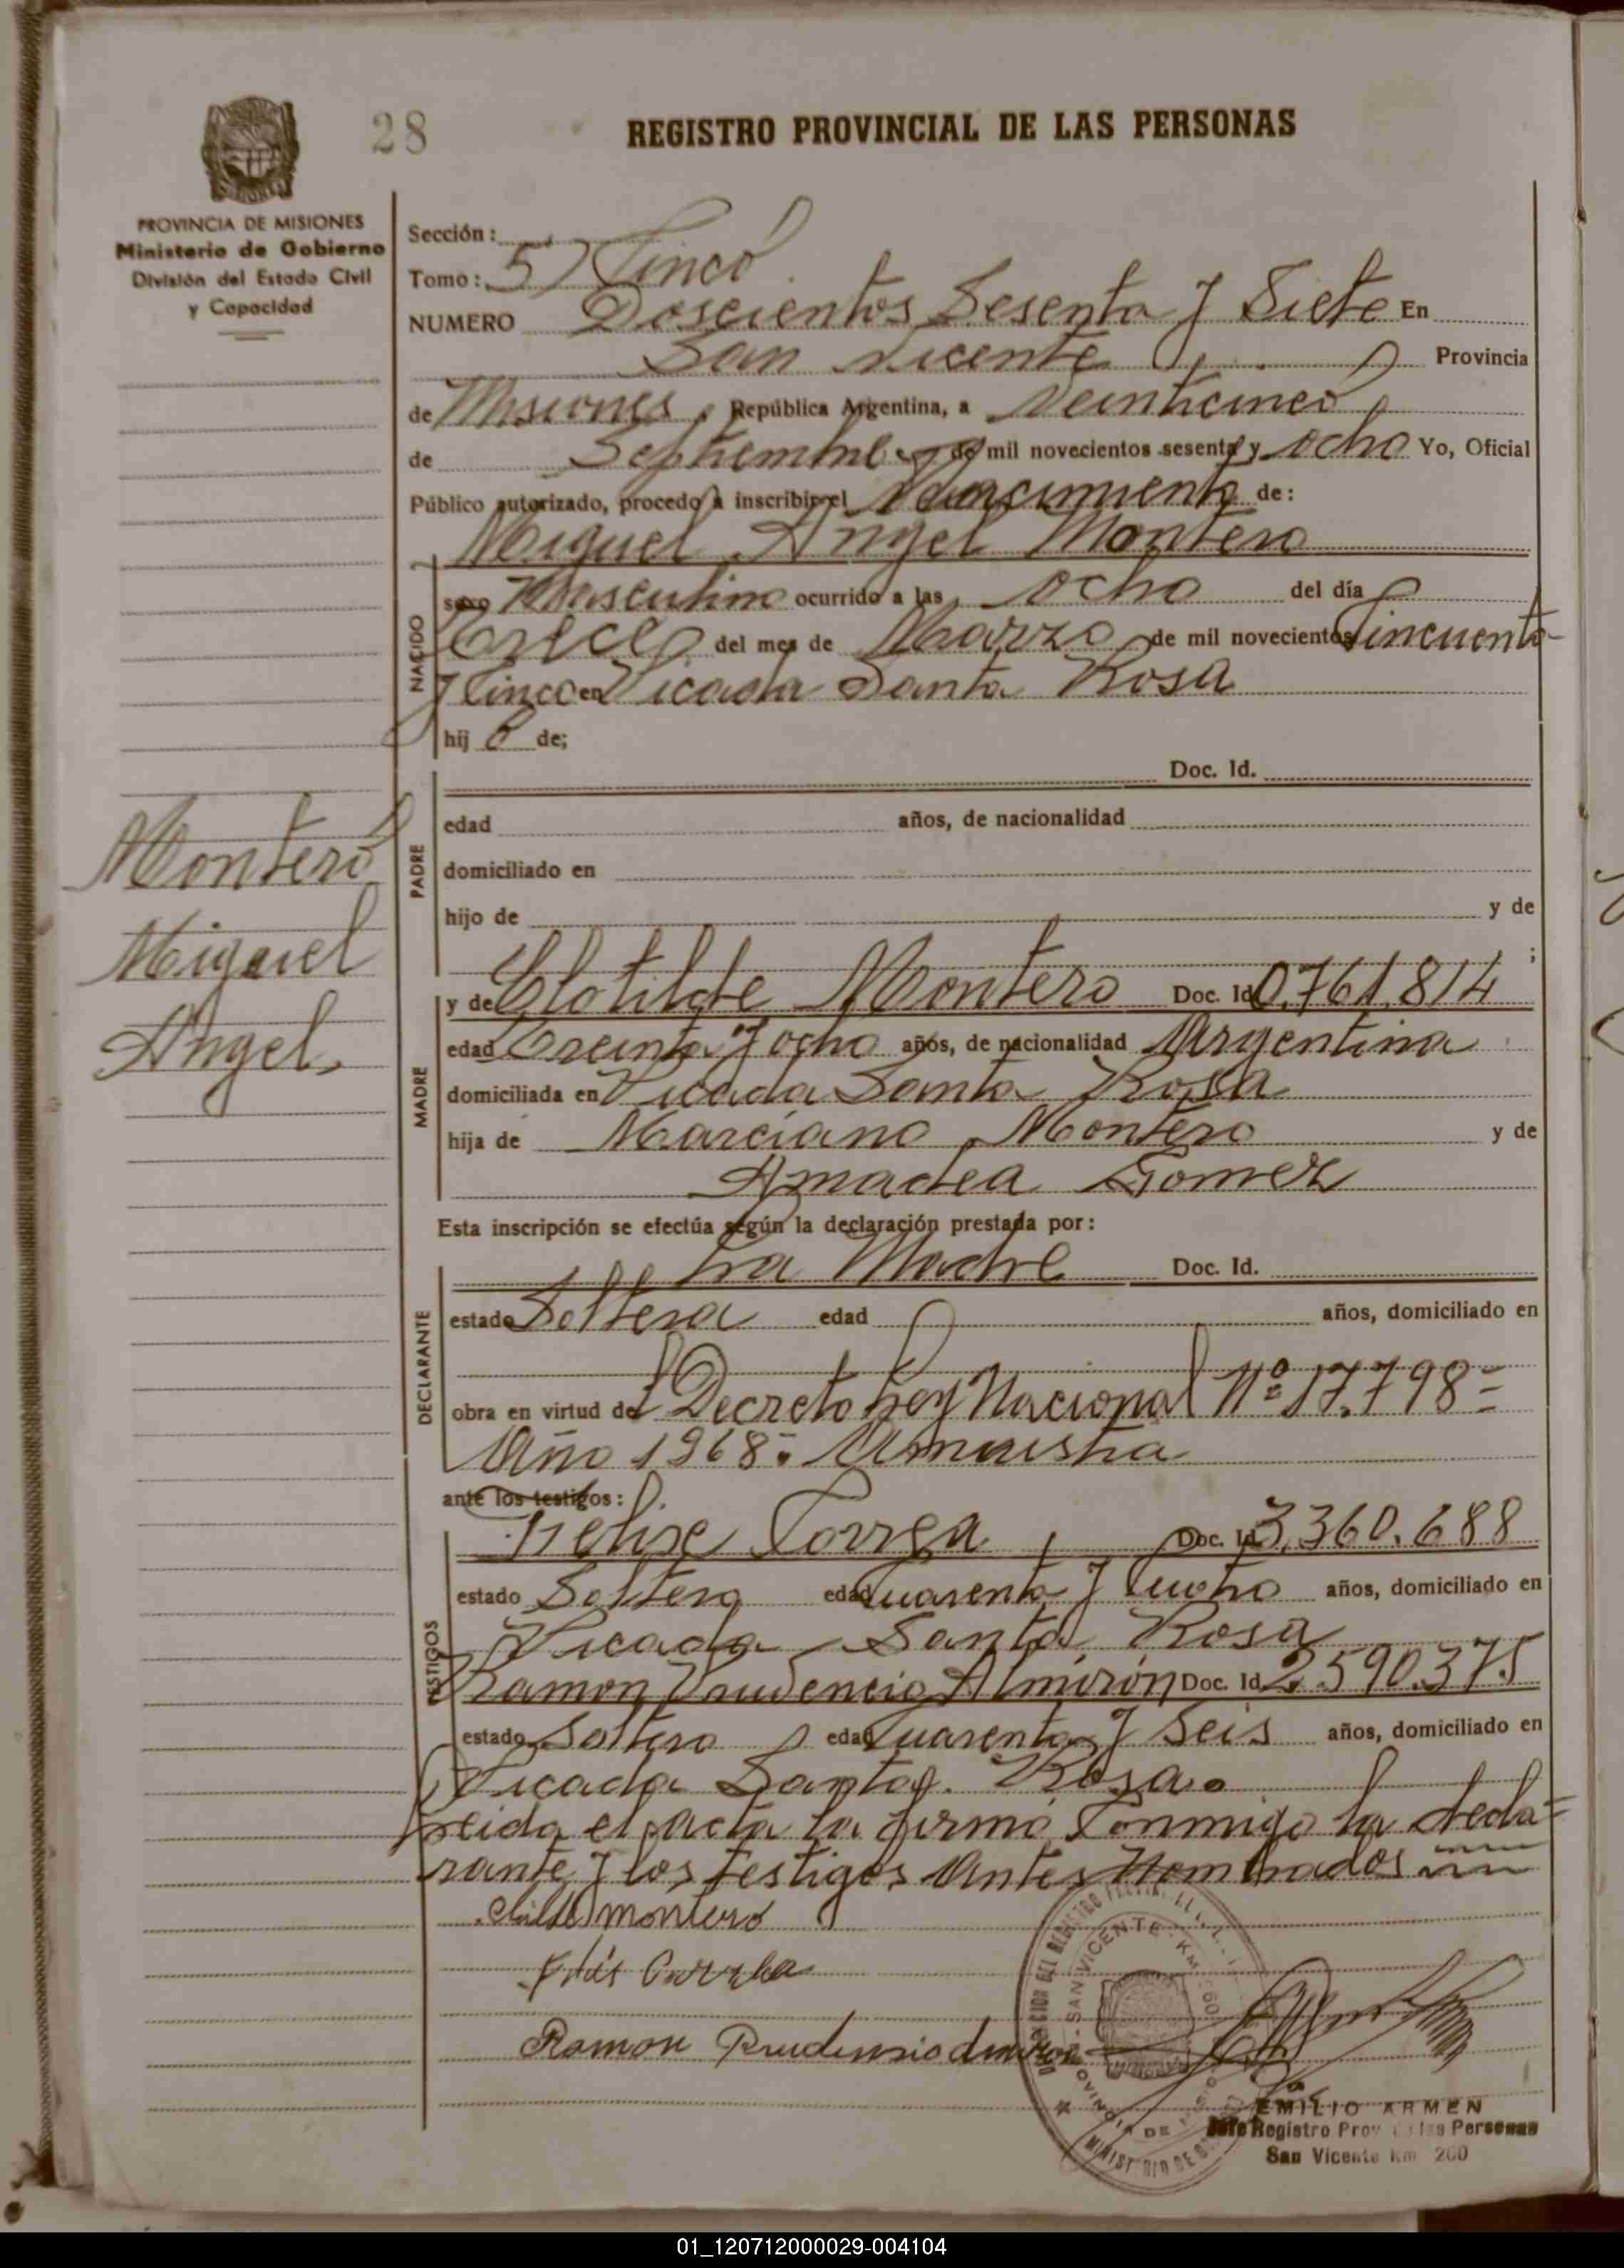 28
REGISTRO PROVINCIAL DE LAS PERSONAS
PROVINCIA DE MISIONES
Ministerio de Gobierno
División del Estado Civil
y Capacidad
Sección:
Tomo: 5) Cinco
NUMERO Doscientos Sesenta y Siete En
San Vicente Provincia
de Misiones, República Argentina, a Veinticinco
de Septiembre de mil novecientos sesenta y ocho Yo, Oficial
Público autorizado, procedo a inscribir el Nacimiento de:
Miguel Angel Montero
NACIDO
sexo Masculino ocurrido a las ocho del día
Trece del mes de Marzo de mil novecientos Cincuenta
y Cinco en Picada Santa Rosa
hij o de;
PADRE
Doc. Id.
edad años, de nacionalidad
domiciliado en
hijo de y de
;
Montero
Miguel
Angel
MADRE
y de Clotilde Montero Doc. Id 0.761.814
edad Treinta y ocho años, de nacionalidad Argentina
domiciliada en Picada Santa Rosa
hija de Marciano Montero y de
Amadea Gomez
Esta inscripción se efectúa según la declaración prestada por:
DECLARANTE
La Madre Doc. Id.
estado Soltera edad años, domiciliado en
obra en virtud del Decreto Ley Nacional Nº 17.798=
Año 1968: Amnistia
ante los testigos:
TESTIGOS
Felipe Correa Doc. Id 3.360.688
estado Soltero edad Cuarenta y Cuatro años, domiciliado en
Picada Santa Rosa
Ramon Prudencio Almirón Doc. Id 2.590.375
estado Soltero edad Cuarenta y Seis años, domiciliado en
Picada Santa Rosa.
Leida el acta la firmó Conmigo la decla=
rante y los testigos Antes Nombrados
Montero
Ramon Prudensio
SAN VICENTE
EMILIO ARMEN
Jefe Registro Prov de las Personas
San Vicente Km 260
01_120712000029-004104